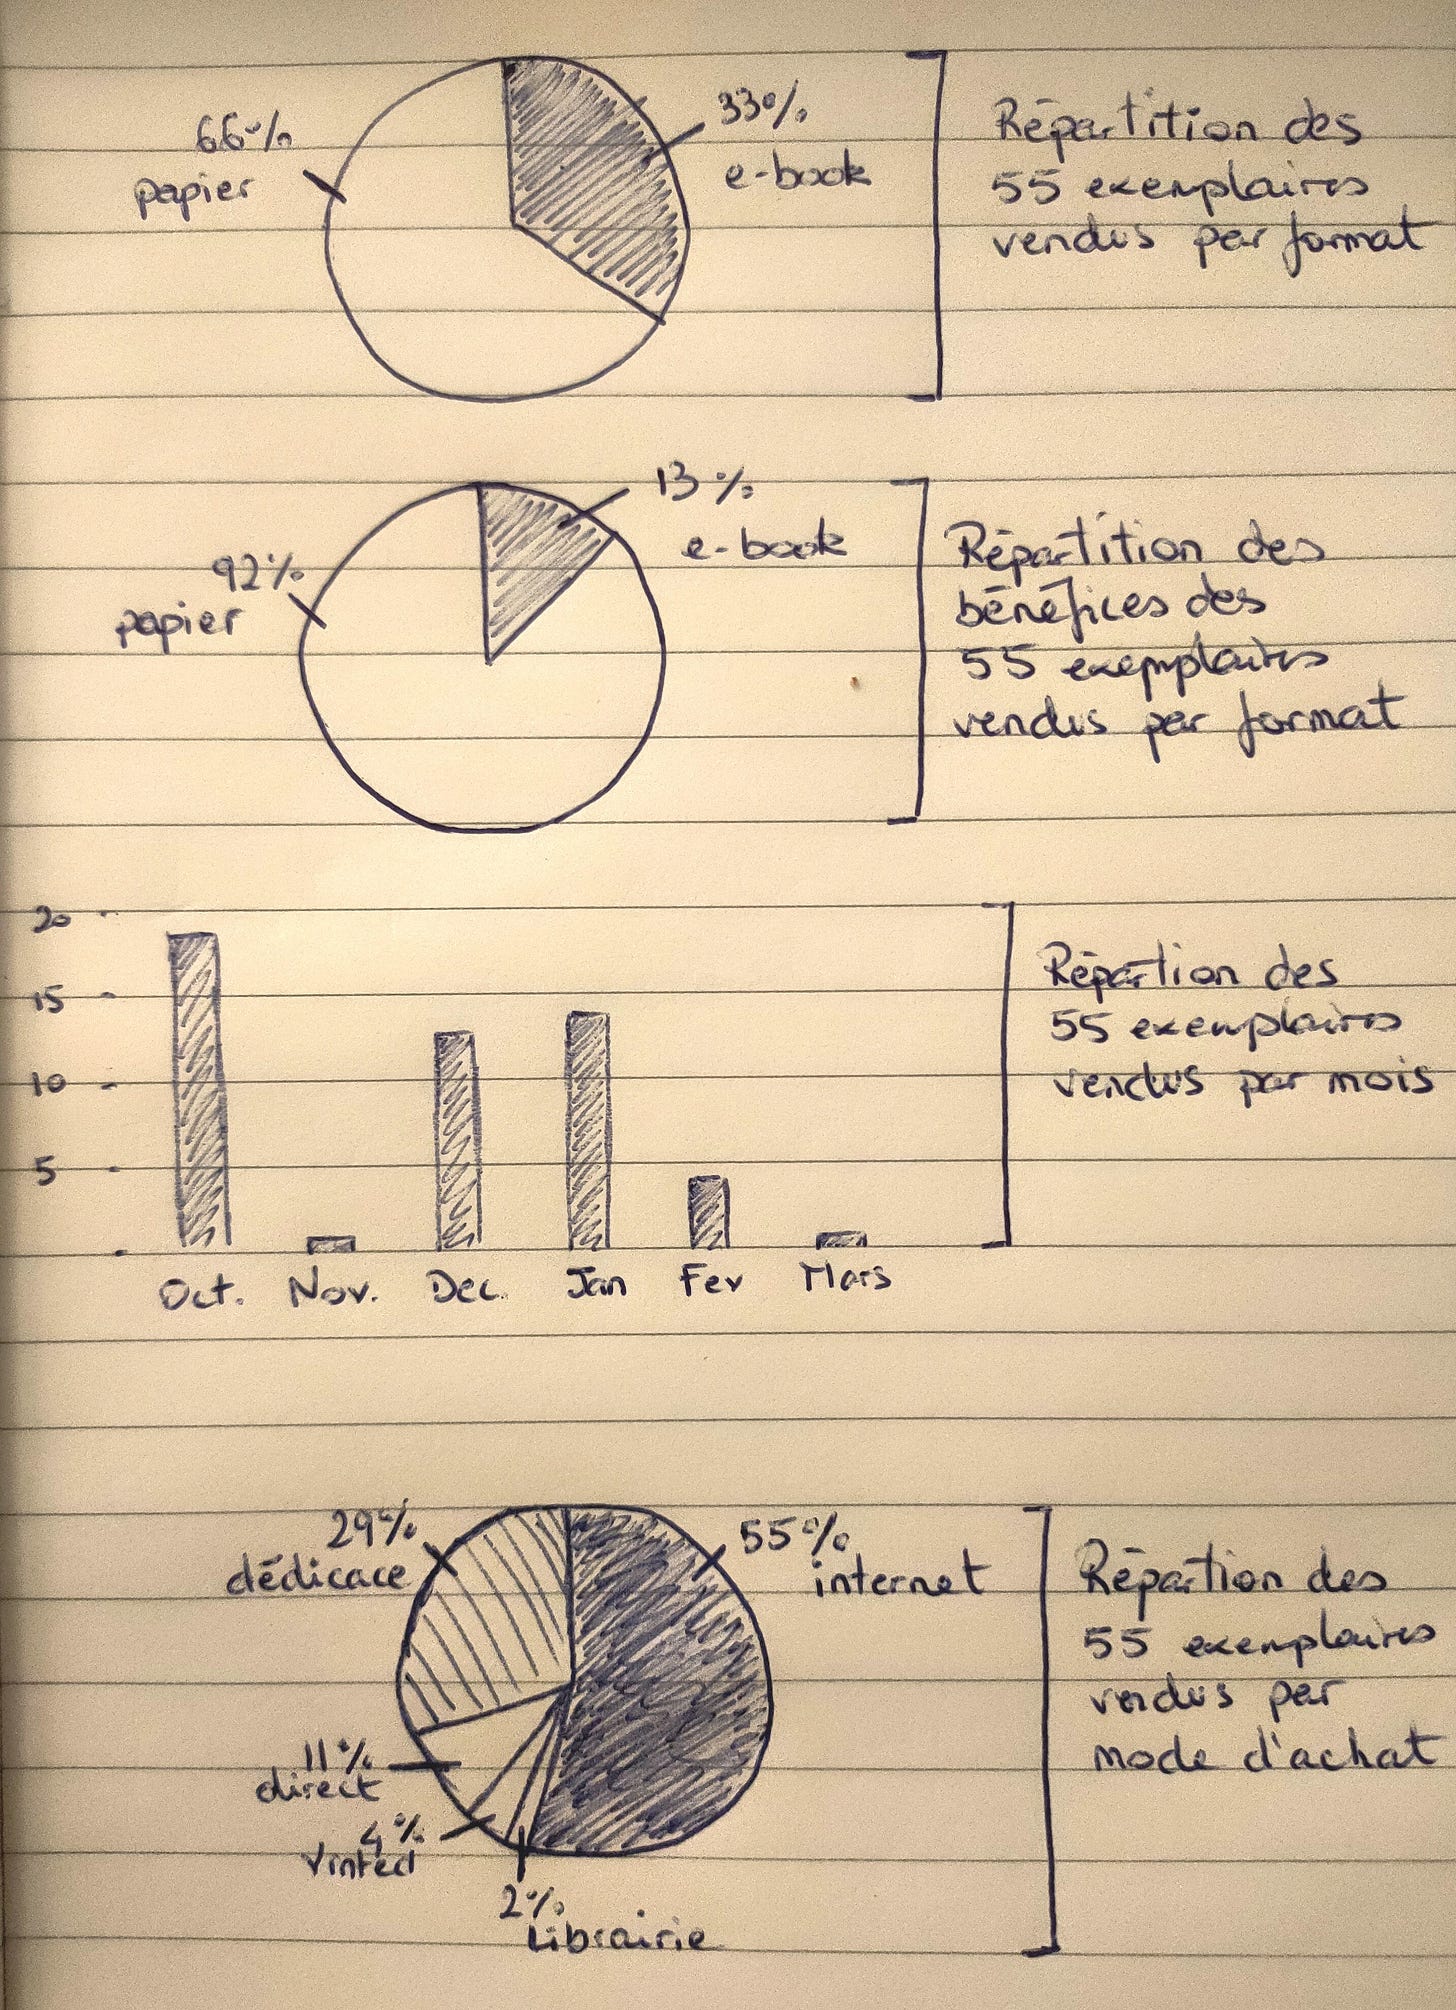 66%
papier
33%
e-book
Répartition des
55 exemplaires
vendus par format
92%
papier
13%
e-book
Répartition des
bénéfices des
55 exemplaires
vendus par format
20
15
10
5
Oct.
Nov.
Dec.
Jan
Fev
Mars
Répartion des
55 exemplaires
vendus par mois
29%
dédicace
55%
internet
11%
direct
4%
Vinted
2%
Librairie
Répartion des
55 exemplaires
vendus par
mode d'achat